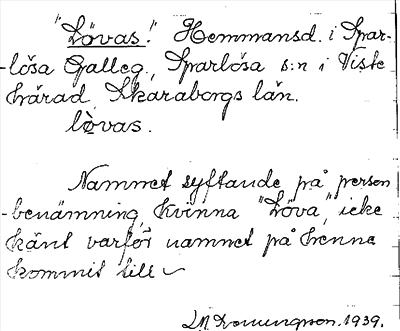 "Lövas." Hemmansd. i Spar-
-lösa Galleg., Sparlösa s:n i Viste
härad, Skaraborgs län.
lòvas.
Namnet syftande på person
-benämning, kvinna "Löva," icke
känt varför namnet på henne
kommit till
1939.